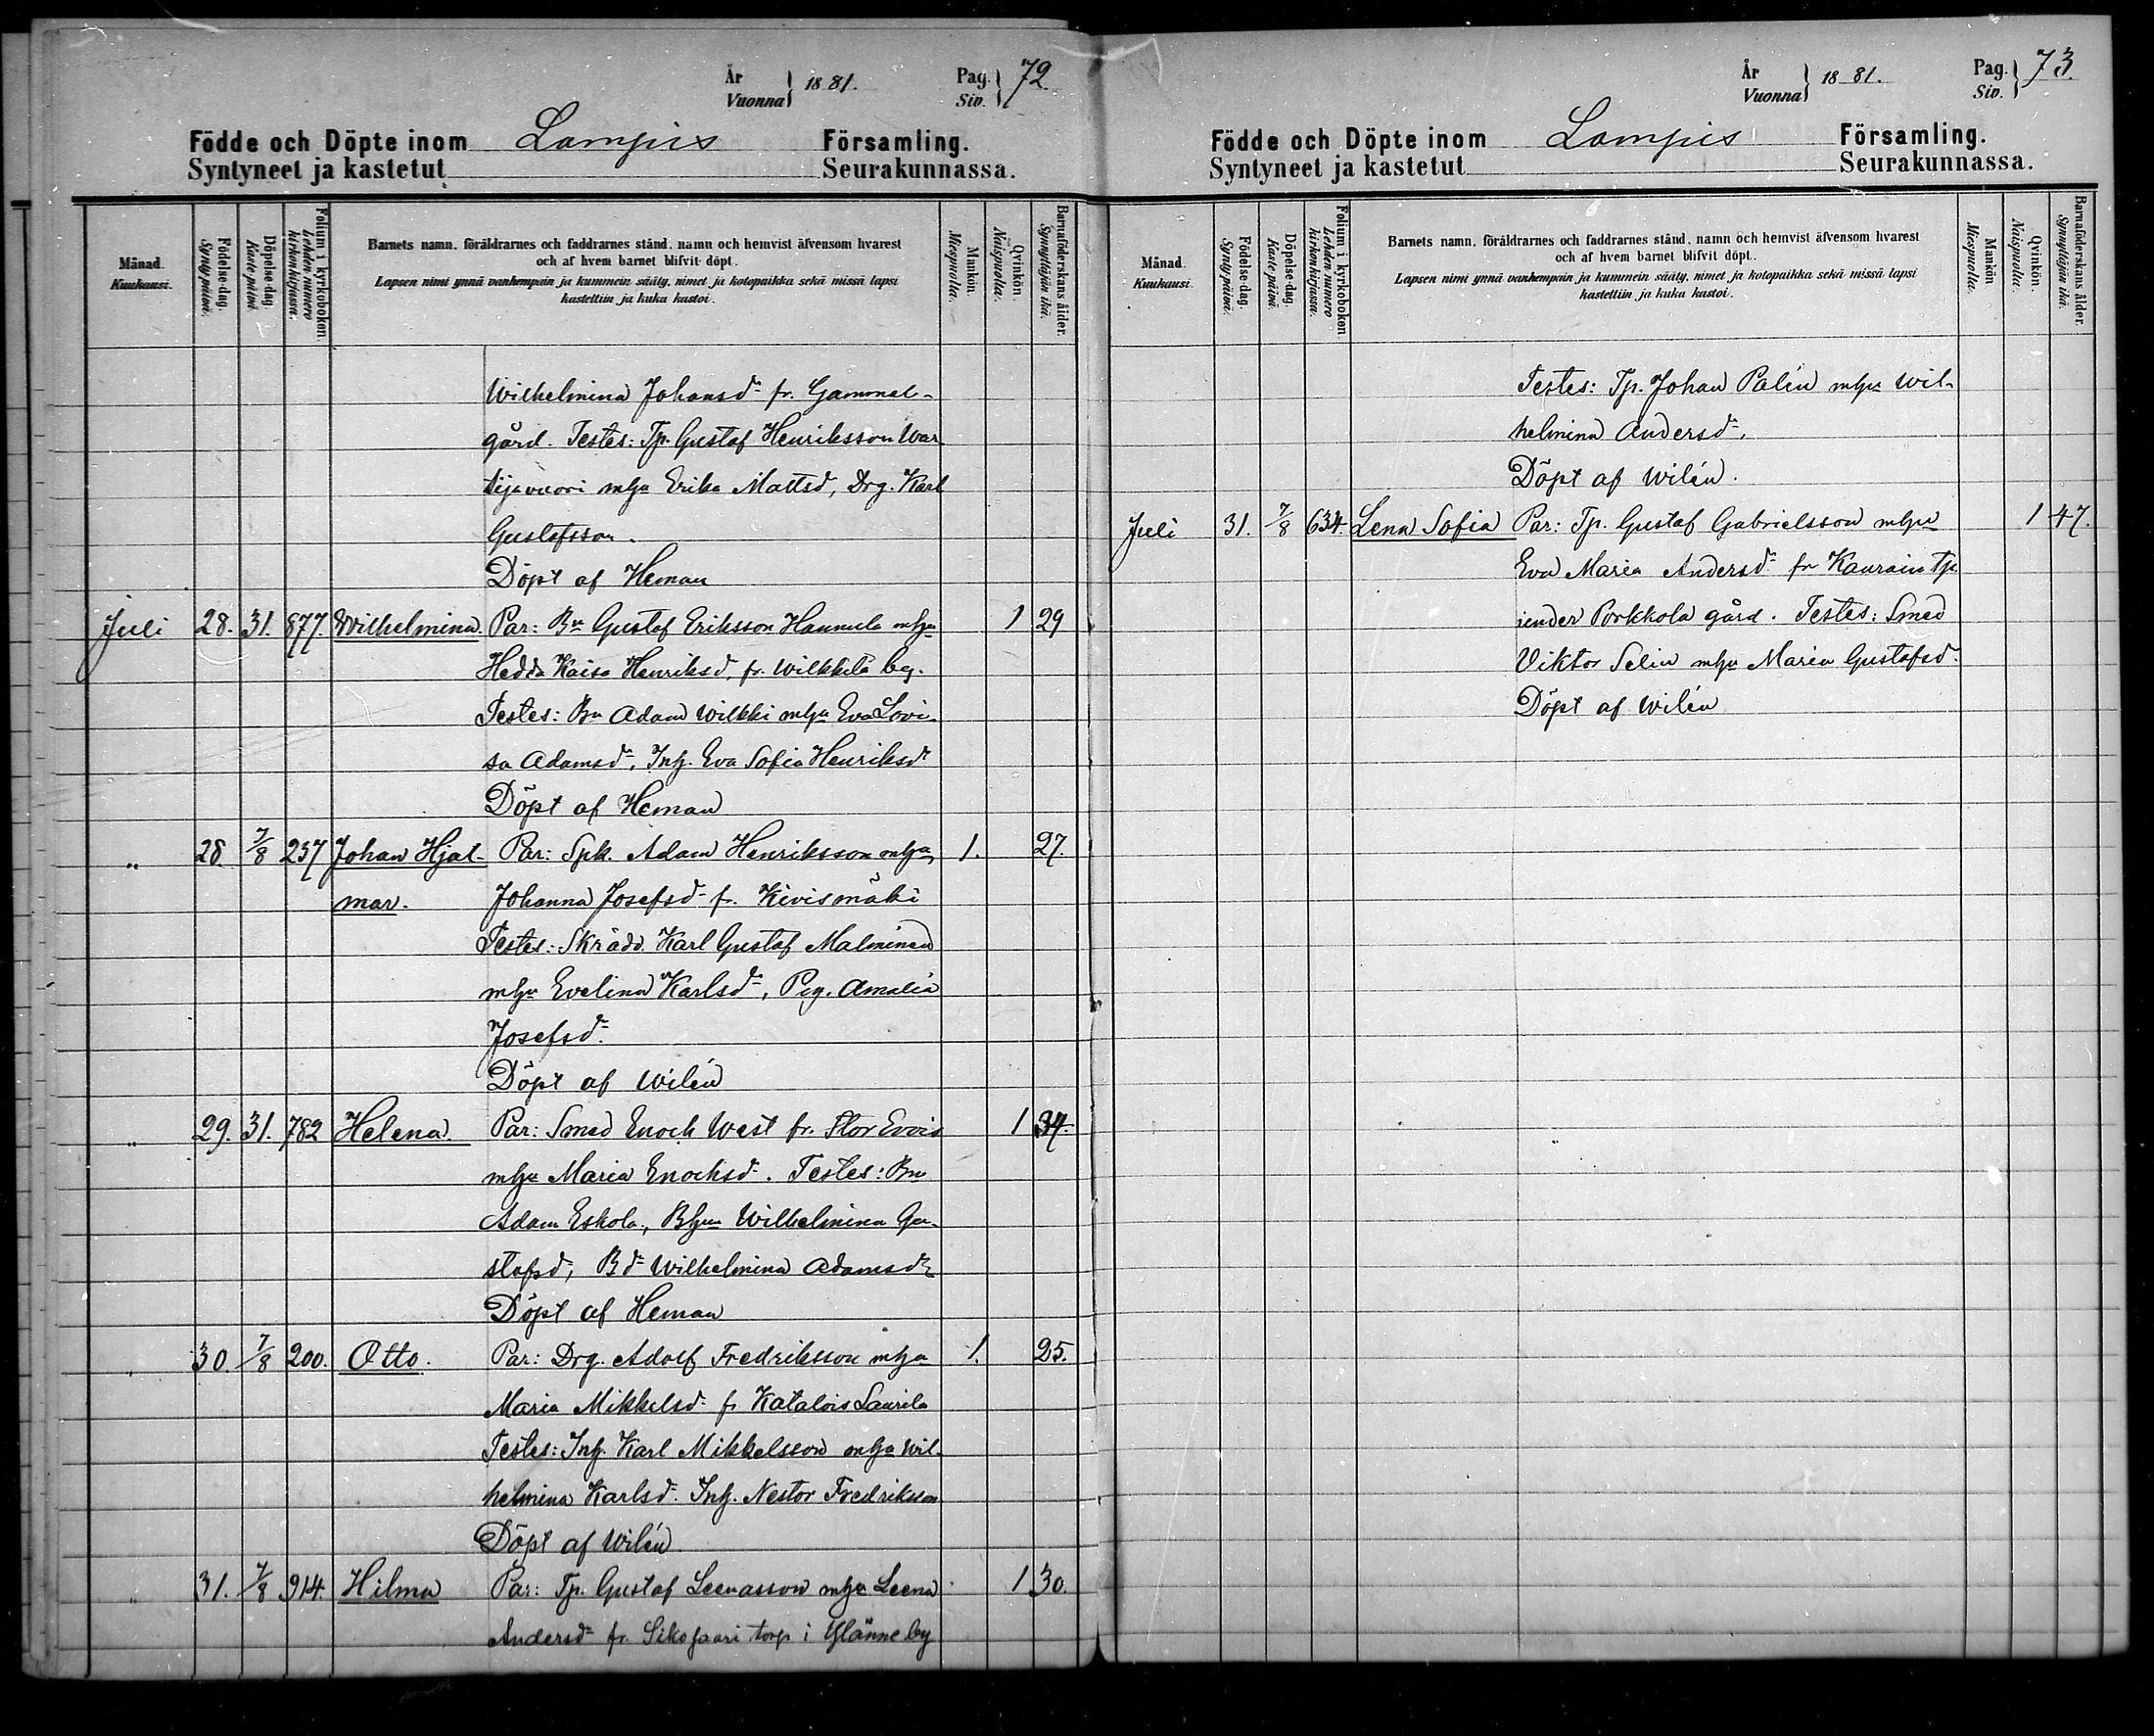 År
Vuonna
1881.
Pag.
Siv.
72.
Födde och Döpte inom Lampis Församling.
Syntyneet ja kastetut Seurakunnassa.
Månad.
Kuukausi.
Födelse-dag.
Syntypäivä.
Döpelse-dag.
Kaste päivä
Folium i kyrkoboken.
Lehden numero
kirkonkirjassa.
Barnets namn, föräldrarnes och faddrarnes stånd, namn och hemvist äfvensom hvarest
och af hvem barnet blifvit döpt.
Lapsen nimi ynnä vanhempain ja kummein sääty, nimet ja kotopaikka sekä missä lapsi
kastettiin ja kuka kastoi.
Mankön.
Miespuolia.
Qvinkön.
Naispuolia.
Barnaföderskans ålder.
Synnyttäjän ikä.
Wilhelmina Johansdr fr. Gammel-
gård. Testes: Tp. Gustaf Henriksson War
tijavuori mhu Erika Mattsd, Drg. Karl
Gustafsson.
Döpt af Heman
Juli 28. 31. 877. Wilhelmina. Par: Bn Gustaf Eriksson Hannula mhu 1 29
Hedda Kaisa Henriksd, fr. Wilkkilä by.
Testes: Bn Adam Wilkki mhu Eva Lovi-
sa Adamsdr, Inh. Eva Sofia Henriksdr
Döpt af Heman
" 28. 7/8 237 Johan Hjal- Par: Spk. Adam Henriksson mhu 1. 27.
mar. Johanna Josefsdr fr. Kivismäki
Testes: Skrädd. Karl Gustaf Malminen
mhu Evelina Karlsdr, Pig. Amalia
Josefsdr
Döpt af Wilén
" 29. 31. 782 Helena. Par: Smed Enoch West fr. Stor Evois 1 34.
mhu Maria Enochsdr. Testes: Bn
Adam Eskola, Bhun Wilhelmina Gu-
stafsdr, Bdr Wilhelmina Adamsdr
Döpt af Heman
" 30. 7/8 200. Otto. Par: Drg. Adolf Fredriksson mhu 1. 25.
Maria Mikkelsdr fr Katalois Laurila
Testes: Inh. Karl Mikkelsson mhu Wil-
helmina Karlsdr. Inh. Nestor Fredriksson
Döpt af Wilén
" 31. 7/8 914. Hilma Par: Tp. Gustaf Leenasson mhu Leena 1 30.
Andersdr fr. torp i Ylänne by
År
Vuonna
1881.
Pag.
Siv.
73.
Födde och Döpte inom Lampis Församling.
Syntyneet ja kastetut Seurakunnassa.
Månad.
Kuukausi.
Födelse-dag.
Syntypäivä.
Döpelse-dag.
Kaste päivä.
Folium i kyrkoboken.
Lehden numero
kirkonkirjassa.
Barnets namn, föräldrarnes och faddrarnes stånd, namn och hemvist äfvensom hvarest
och af hvem barnet blifvit döpt.
Lapsen nimi ynnä vanhempain ja kummein sääty, nimet ja kotopaikka sekä missä lapsi
kastettiin ja kuka kastoi.
Mankön
Miespuolia.
Qvinkön.
Naispuolia.
Barnaföderskans ålder.
Synnyttäjän ikä.
Testes: Tp. Johan Palin mhu Wil-
helmina Andersdr.
Döpt af Wilén.
Juli 31. 7/8 634. Lena Sofia Par: Tp. Gustaf Gabrielsson mhu 1 47.
Eva Maria Andersdr fr Kaurain tp.
under Porkkola gård. Testes: Smed
Viktor Selin mhu Maria Gustafsd.
Döpt af Wilén